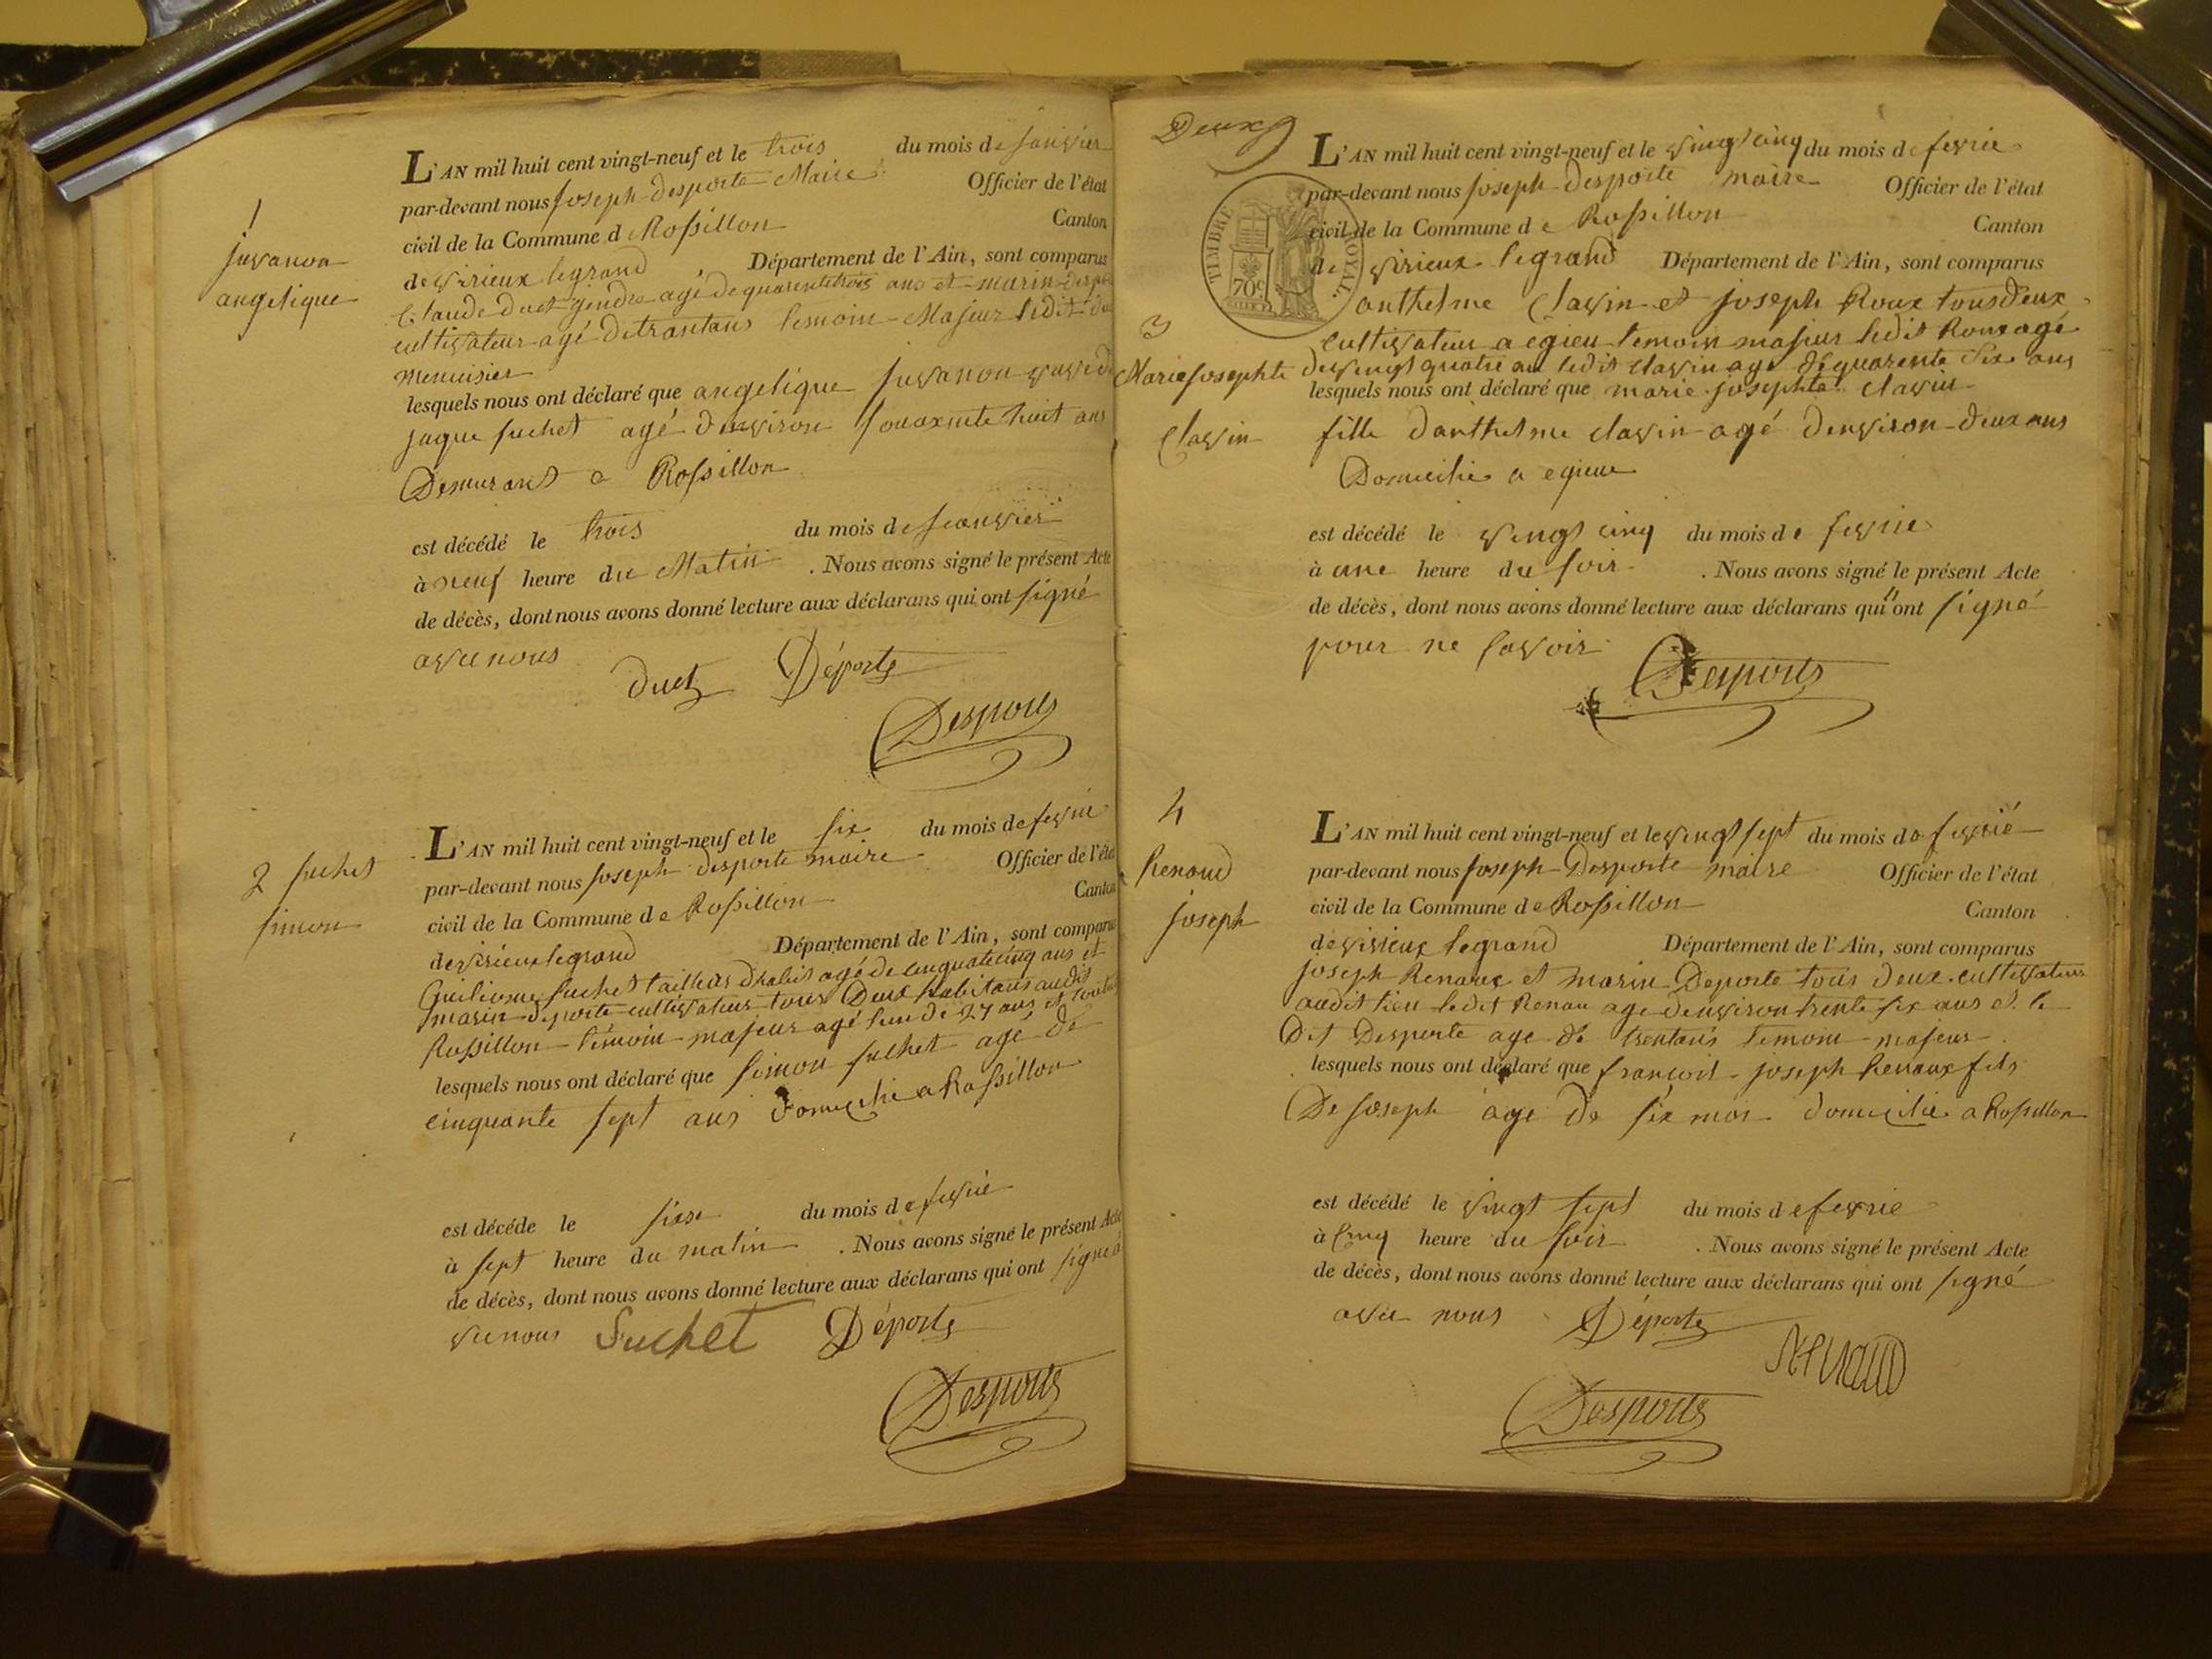 1
juvanon
angelique
L'AN mil huit cent vingt-neuf et le trois du mois de janvier
par-devant nous joseph desporte Maire Officier de l'état
civil de la Commune d Rossillon Canton
de virieux legrand Département de l'Ain, sont comparus
Claude duet gendre agé de quarentetrois ans et marin
cultivateur agé detrantans temoin Majeur ledit
menuisier
lesquels nous ont déclaré que angelique juvanon
jaque suchet agé d'environ souaxente huit ans
Demurant a Rossillon
est décédé le trois du mois de jeanvier
à neuf heure du Matin . Nous avons signé le présent Acte
de décès, dont nous avons donné lecture aux déclarans qui ont signé
avec nous
duet Déporte
Desporte
2 suchet
simon
L'AN mil huit cent vingt-neuf et le six du mois de fevrie
par-devant nous joseph desporte maire Officier de l'état
civil de la Commune de Rossillon Canton
de virieux legrand Département de l'Ain, sont comparus
suchet tailleur dhabit agé de cinquatecinq ans et
marin deporte cultivateur tous Deux habitans audit
Rossillon temoin majeur agé lun de 27 ans et
lesquels nous ont déclaré que simon suchet age de
cinquante sept ans domicilié a Rossillon
est décéde le sixe du mois de fevrie
à sept heure du matin . Nous avons signé le présent Acte
de décès, dont nous avons donné lecture aux déclarans qui ont signé
vecnous Suchet Déporte
Desporte
Deux
TIMBRE ROYAL.
70c
3
Marie josephte
Clavin
L'AN mil huit cent vingt-neuf et le vingt cinq du mois de fevrie
par-devant nous joseph desporte maire Officier de l'état
civil de la Commune de Rossillon Canton
de virieux legrand Département de l'Ain, sont comparus
anthelme Clavin et joseph Roux tousdeux
cultivateur a egieu temoin majeur ledit Roux agé
devingt quatre an ledit clavin age de quarente six ans
lesquels nous ont déclaré que marie josephte clavin
fille danthelme clavin agé denviron deux ans
Domicilie a egieu
est décédé le vingt cinq du mois de fevrie
à une heure du soir . Nous avons signé le présent Acte
de décès, dont nous avons donné lecture aux déclarans qui n'ont signé
pour ne savoir
Desporte
4
Renaud
joseph
L'AN mil huit cent vingt-neuf et le vingt sept du mois de fevrié
par-devant nous joseph Desporte maire Officier de l'état
civil de la Commune de Rossillon Canton
de virieux legrand Département de l'Ain, sont comparus
joseph Renaux et marin Deporte tous deux cultivateur
audit lieu ledit Renau age denviron trente six ans et le
Dit Desporte age de trentans temoin majeur
lesquels nous ont déclaré que francois joseph Renaux fils
De joseph age de six mois domicilie a Rossillon
est décédé le vingt sept du mois de fevrie
à cinq heure du soir . Nous avons signé le présent Acte
de décès, dont nous avons donné lecture aux déclarans qui ont signé
avec nous Déporte
Renaud
Desporte